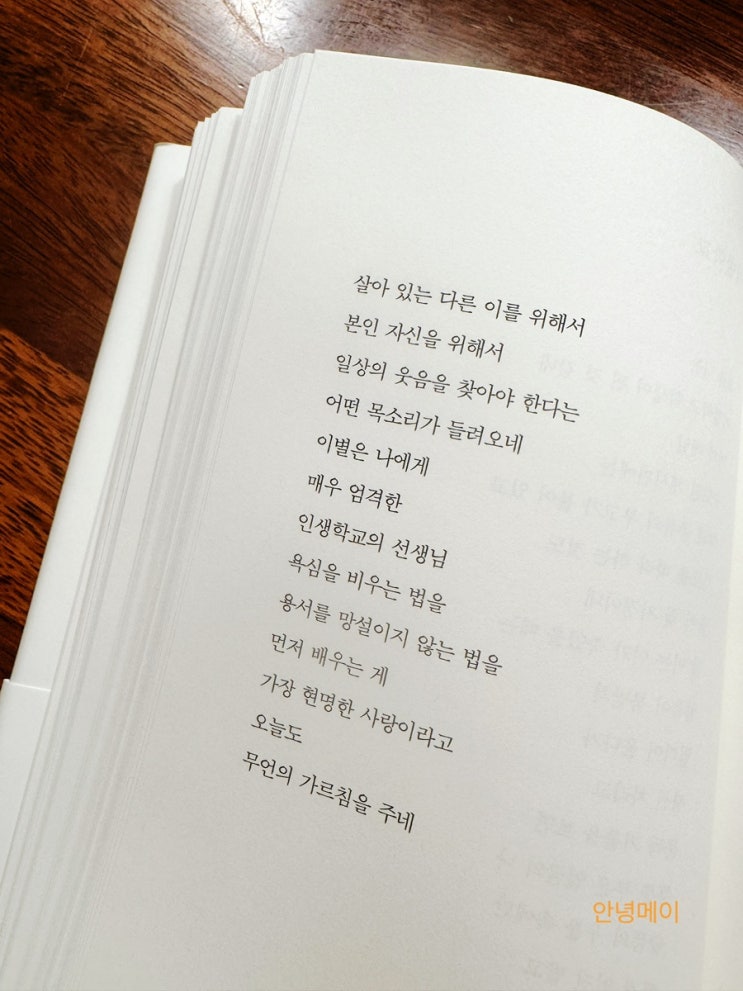 살아 있는 다른 이를 위해서
본인 자신을 위해서
일상의 웃음을 찾아야 한다는
어떤 목소리가 들려오네
이별은 나에게
매우 엄격한
인생학교의 선생님
욕심을 비우는 법을
용서를 망설이지 않는 법을
먼저 배우는 게
가장 현명한 사랑이라고
오늘도
무언의 가르침을 주네
안녕메이